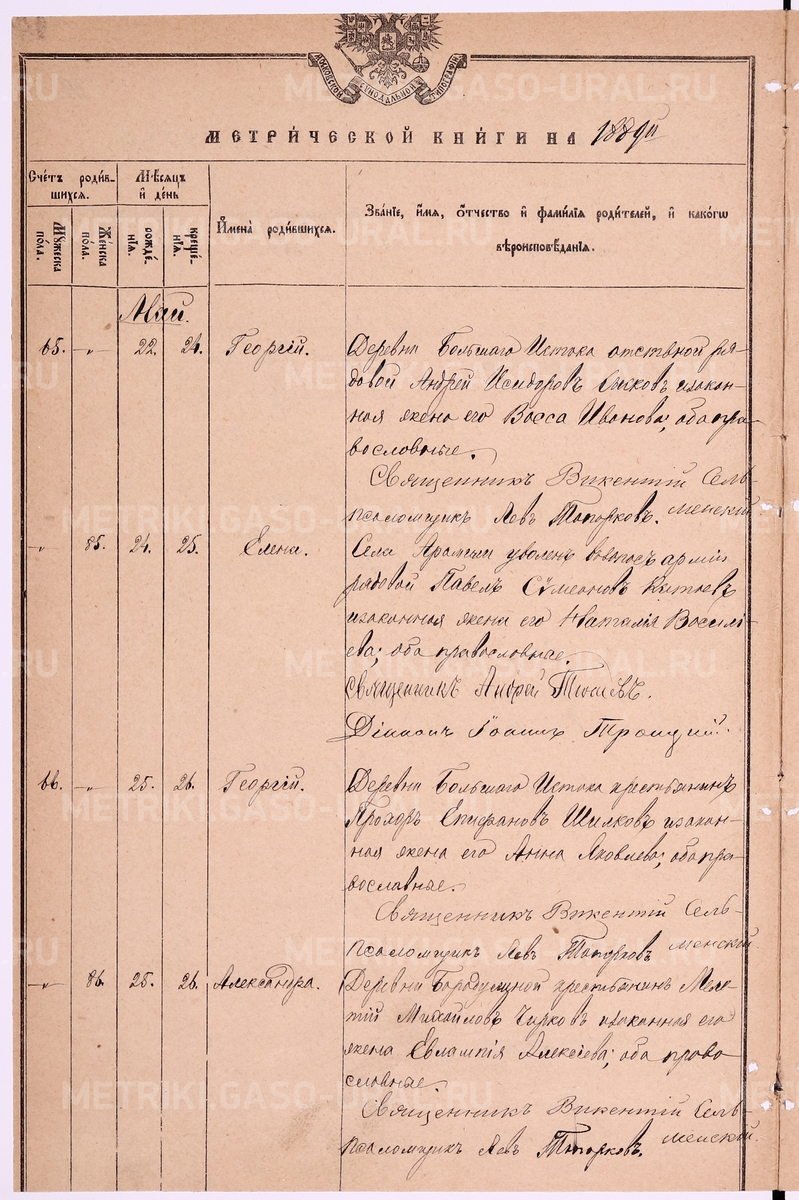 МОСКОВСКОЙ СѴНОДАЛЬНОЙ ТИПОГРАФІИ
МЕТРИ́ЧЕСКОЙ КНИ́ГИ НА 1889й
Сче́тъ роди́в-
шихся.
Мѣсяцъ
и́ де́нь
Мꙋ́жеска
по́ла.
Же́нска
по́ла.
рожде́-
нїѧ.
креще́-
нїѧ.
И҆мена̀ роди́вшихся.
Зва́нїе, и҆́мѧ, ѻ҆́тчество и҆ фами́лїѧ роди́телей, и҆ како́гѡ
вѣроисповѣ́данїѧ.
Май.
65. -"- 22. 24. Георгій. Деревни Большаго Истока отствной ря-
довой Андрей Исидоровъ Быковъ изакон-
ная жена его Васса Иванова; оба пра-
вославные.
Священникъ Викентій Сель-
менскій
псаломщикъ Левъ Топорковъ.
-"- 85. 24. 25. Елена. Села Арамили уволен. взапасъ арміи
рядовой Павелъ Сѵмеоновъ
изаконная жена его Наталія Василі-
ева; оба православные.
Священникъ Андрей
Діаконъ Іоаннъ Троицкій.
66. -"- 25. 26. Георгій. Деревни Большаго Истока крестьянинъ
Прохоръ Епифановъ Шилковъ изакон-
ная жена его Анна Яковлева; оба пра-
вославные.
Священникъ Викентій Сель-
менскій
псаломщикъ Левъ Топорковъ
-"- 86. 25. 26. Александра. Деревни Бородулиной крестьянинъ Меле-
тій Михайловъ Чирковъ изаконная его
жена Евлампія Алексіева; оба право
славные.
Священникъ Викентій Сель-
менскій.
псаломщикъ Левъ Топорковъ.
METRIKI.GASO-URAL.RU